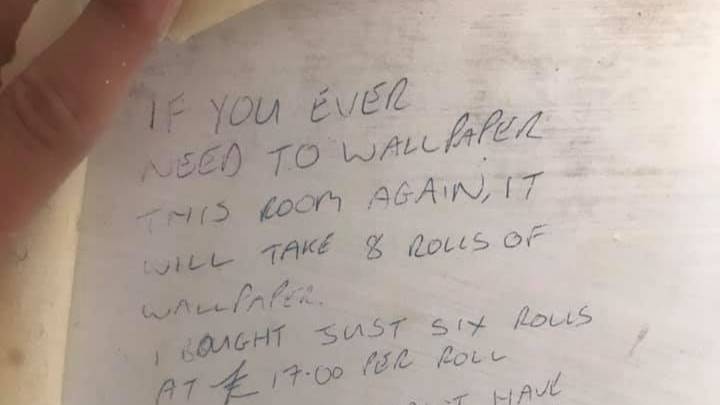 IF YOU EVER
NEED TO WALLPAPER
THIS ROOM AGAIN, IT
WILL TAKE 8 ROLLS OF
WALLPAPER.
I BOUGHT JUST SIX ROLLS
AT £17.00 PER ROLL
HAVE